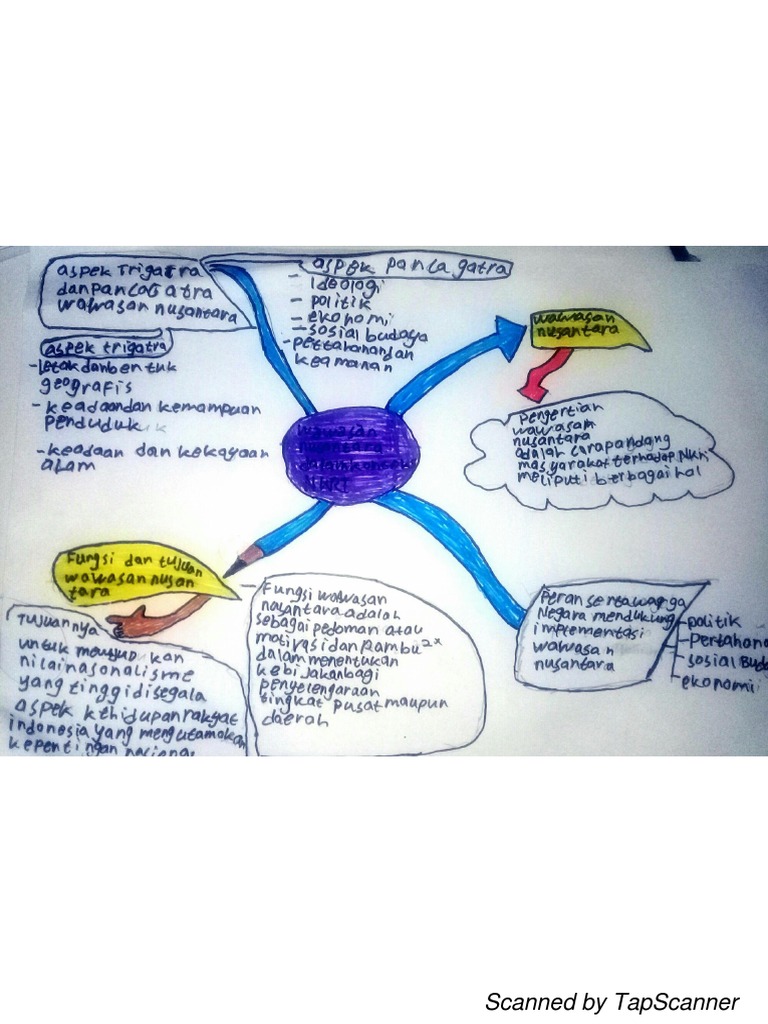 aspek Trigatra
dan Panca Gatra
wawasan nusantara
aspek trigatra
- letak dan bentuk
geografis
- keadaan dan kemampuan
penduduk
- keadaan dan kekayaan
alam
aspek panca gatra
- Ideologi
- politik
- ekonomi
- sosial budaya
- pertahanan dan
keamanan
wawasan
nusantara
Pengertian
wawasan
nusantara
adalah carapandang
masyarakat terhadap NKRI
meliputi berbagai hal
wawasan
nusantara
dalam konsep
NKRI
Fungsi dan tujuan
wawasan nusan
tara
Tujuannya
untuk mewujud kan
nilai nasonalisme
yang tinggi disegala
aspek kehidupan rakyat
indonesia yang mengutamakan
kepentingan nasional
- Fungsi wawasan
nusantara adalah
sebagai pedoman atau
motivasi dan rambu2x
dalam menentukan
kebijakan bagi
penyelengaraan
tingkat pusat maupun
daerah
Peran serta warga
Negara mendukung
implementasi
wawasan
nusantara
- politik
- Pertahana
- sosial Buda
- ekonomi
Scanned by TapScanner